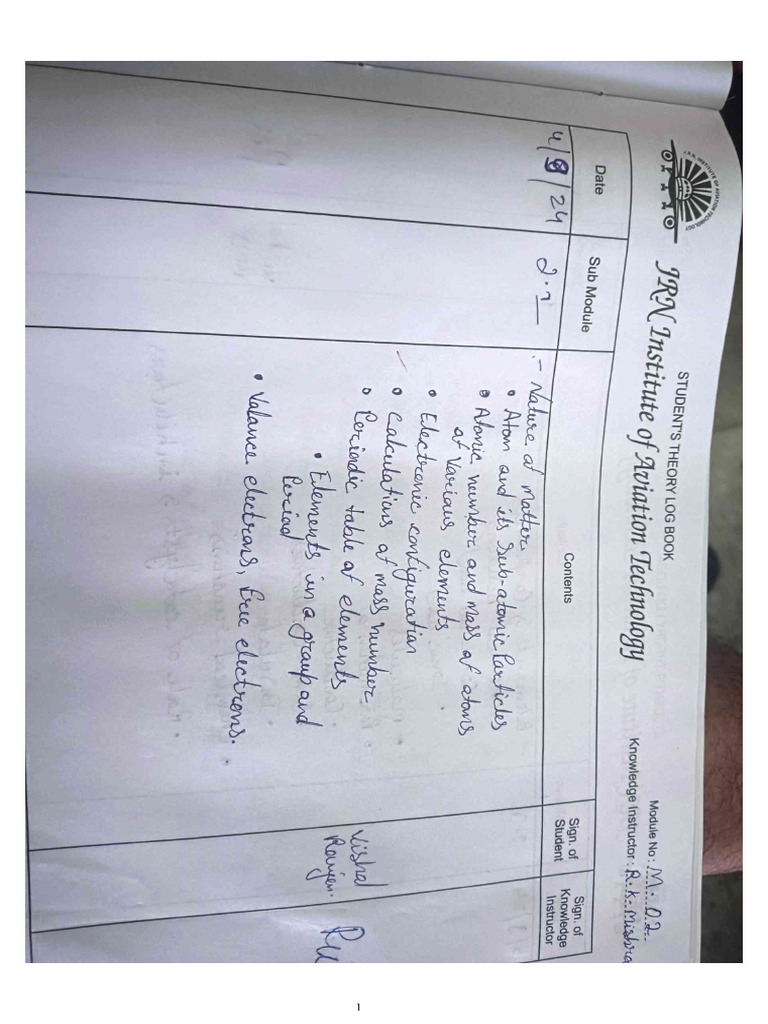 STUDENT'S THEORY LOG BOOK
J.R.N. INSTITUTE OF AVIATION TECHNOLOGY
JRN Institute of Aviation Technology
Module No: M. 02
Knowledge Instructor: R.K. Mishra
Date
Sub Module
Contents
Sign. of Student
Sign. of Knowledge Instructor
4/9/24
2.1
:- Nature of Matter.
• Atom and its sub-atomic Particles
• Atomic number and mass of atoms
of various elements
• Electronic configuration
• Calculations of mass number
• Periodic table of elements
• Elements in a group and
Period
• Valance electrons, free electrons.
1